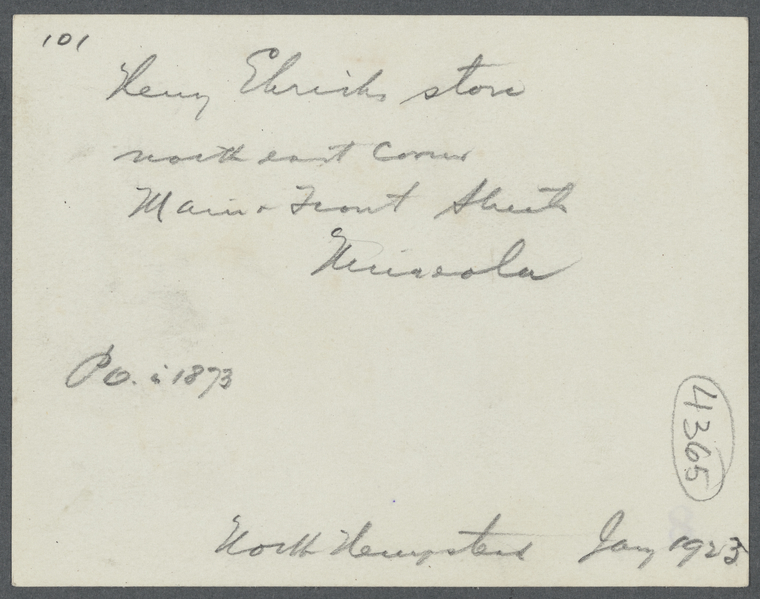 101
Henry Ehrichs store
north east corner
Main & Front Streets
Mineola
P.O. in 1873
4365
North Hempstead Jany 1923